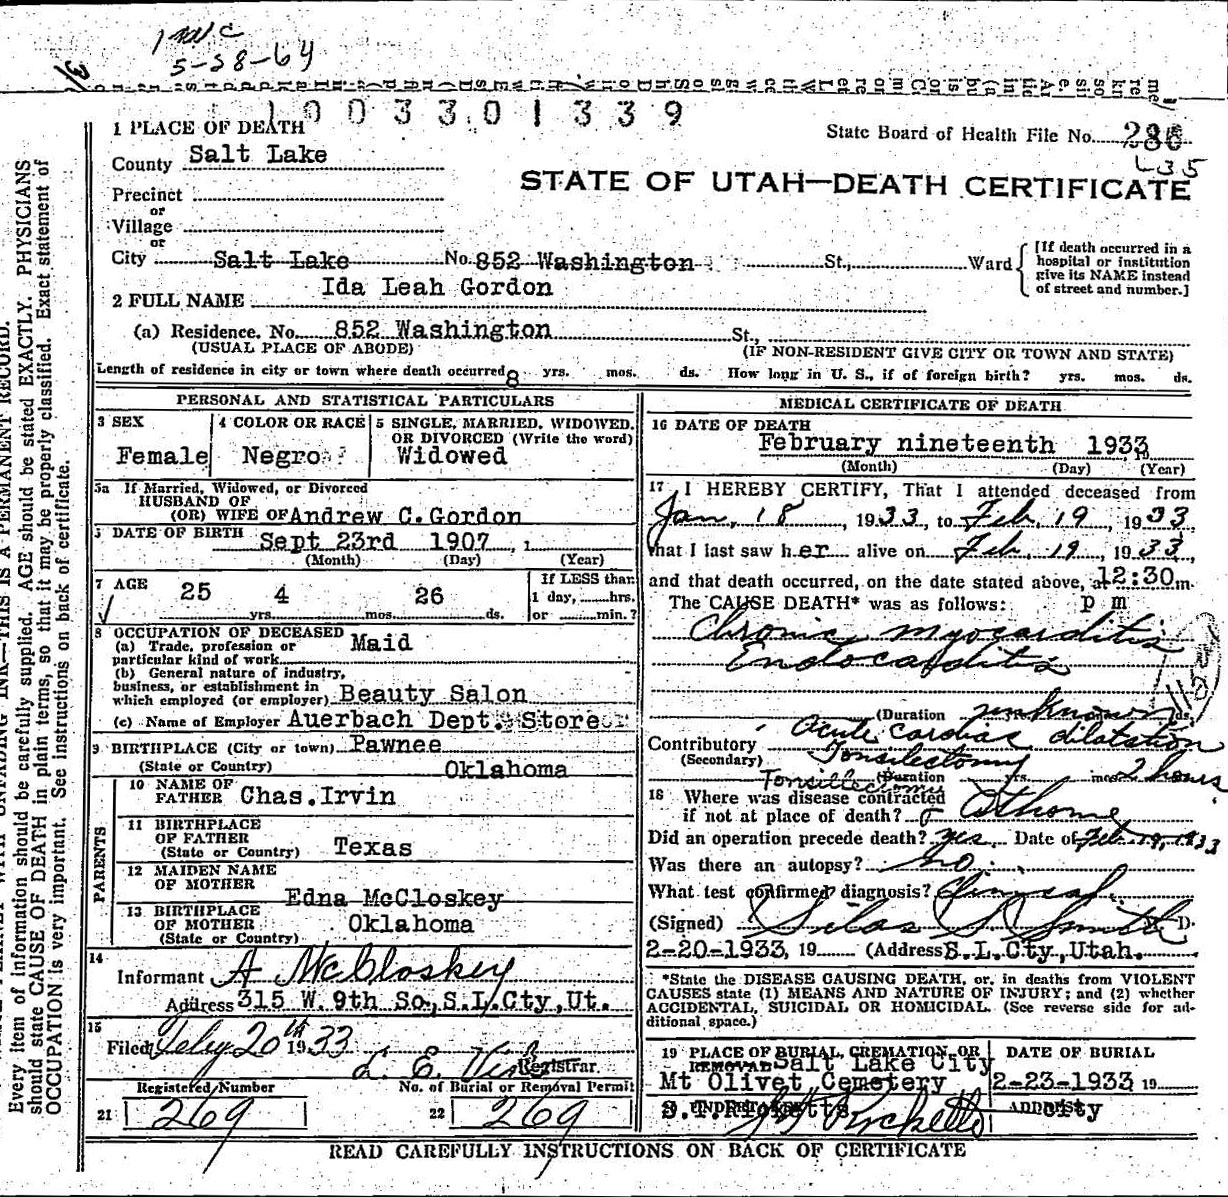 5-28-64
1003301339
State Board of Health File No. 286
L35
STATE OF UTAH—DEATH CERTIFICATE
1 PLACE OF DEATH
County Salt Lake
Precinct
or
Village
or
City Salt Lake No. 852 Washington St., Ward
[If death occurred in a
hospital or institution
give its NAME instead
of street and number.]
2 FULL NAME Ida Leah Gordon
(a) Residence. No. 852 Washington St.,
(USUAL PLACE OF ABODE) (IF NON-RESIDENT GIVE CITY OR TOWN AND STATE)
Length of residence in city or town where death occurred 8 yrs. mos. ds. How long in U. S., if of foreign birth? yrs. mos. ds.
PERSONAL AND STATISTICAL PARTICULARS
3 SEX
Female
4 COLOR OR RACE
Negro
5 SINGLE, MARRIED, WIDOWED,
OR DIVORCED (Write the word)
Widowed
5a If Married, Widowed, or Divorced
HUSBAND OF
(OR) WIFE OF Andrew C. Gordon
DATE OF BIRTH Sept 23rd 1907, 1
(Month) (Day) (Year)
7 AGE
25 yrs. 4 mos. 26 ds.
If LESS than
1 day, hrs.
or min.?
8 OCCUPATION OF DECEASED
(a) Trade, profession or
particular kind of work Maid
(b) General nature of industry,
business, or establishment in
which employed (or employer) Beauty Salon
(c) Name of Employer Auerbach Dept. Store
9 BIRTHPLACE (City or town) Pawnee
(State or Country) Oklahoma
PARENTS
10 NAME OF
FATHER Chas. Irvin
11 BIRTHPLACE
OF FATHER
(State or Country) Texas
12 MAIDEN NAME
OF MOTHER
Edna McCloskey
13 BIRTHPLACE
OF MOTHER Oklahoma
(State or Country)
14
Informant A McCloskey
Address 315 W. 9th So, S.L.Cty, Ut.
15
Filed Feby 20th 1933
Registrar.
Registered Number
21 269
No. of Burial or Removal Permit
22 269
MEDICAL CERTIFICATE OF DEATH
16 DATE OF DEATH
February nineteenth 1933
(Month) (Day) (Year)
17 I HEREBY CERTIFY, That I attended deceased from
Jan, 18, 1933, to Feb, 19, 1933
that I last saw her alive on Feb, 19, 1933,
and that death occurred, on the date stated above, at 12:30 m.
The CAUSE DEATH* was as follows: p m
Chronic myocarditis
Endocarditis
(Duration unknown ds.
Contributory Acute cardiac dilatation
(Secondary) Tonsilectomy
Tonsillectomy (Duration yrs. mos. 2 hours
18 Where was disease contracted
if not at place of death? At home
Did an operation precede death? yes Date of Feb 19, 1933
Was there an autopsy? no
What test confirmed diagnosis? Clinical
(Signed) Silas S Smith D.
2-20-1933, 19 (Address S.L.Cty, Utah.
*State the DISEASE CAUSING DEATH, or, in deaths from VIOLENT
CAUSES state (1) MEANS AND NATURE OF INJURY; and (2) whether
ACCIDENTAL, SUICIDAL OR HOMICIDAL. (See reverse side for ad-
ditional space.)
19 PLACE OF BURIAL, CREMATION, OR
REMOVAL Salt Lake City
Mt Olivet Cemetery
DATE OF BURIAL
2-23-1933, 19
UNDERTAKER
Ricketts
ADDRESS
City
READ CAREFULLY INSTRUCTIONS ON BACK OF CERTIFICATE
THIS IS A PERMANENT RECORD.
Every item of information should be carefully supplied. AGE should be stated EXACTLY. PHYSICIANS
should state CAUSE OF DEATH in plain terms, so that it may be properly classified. Exact statement of
OCCUPATION is very important. See instructions on back of certificate.